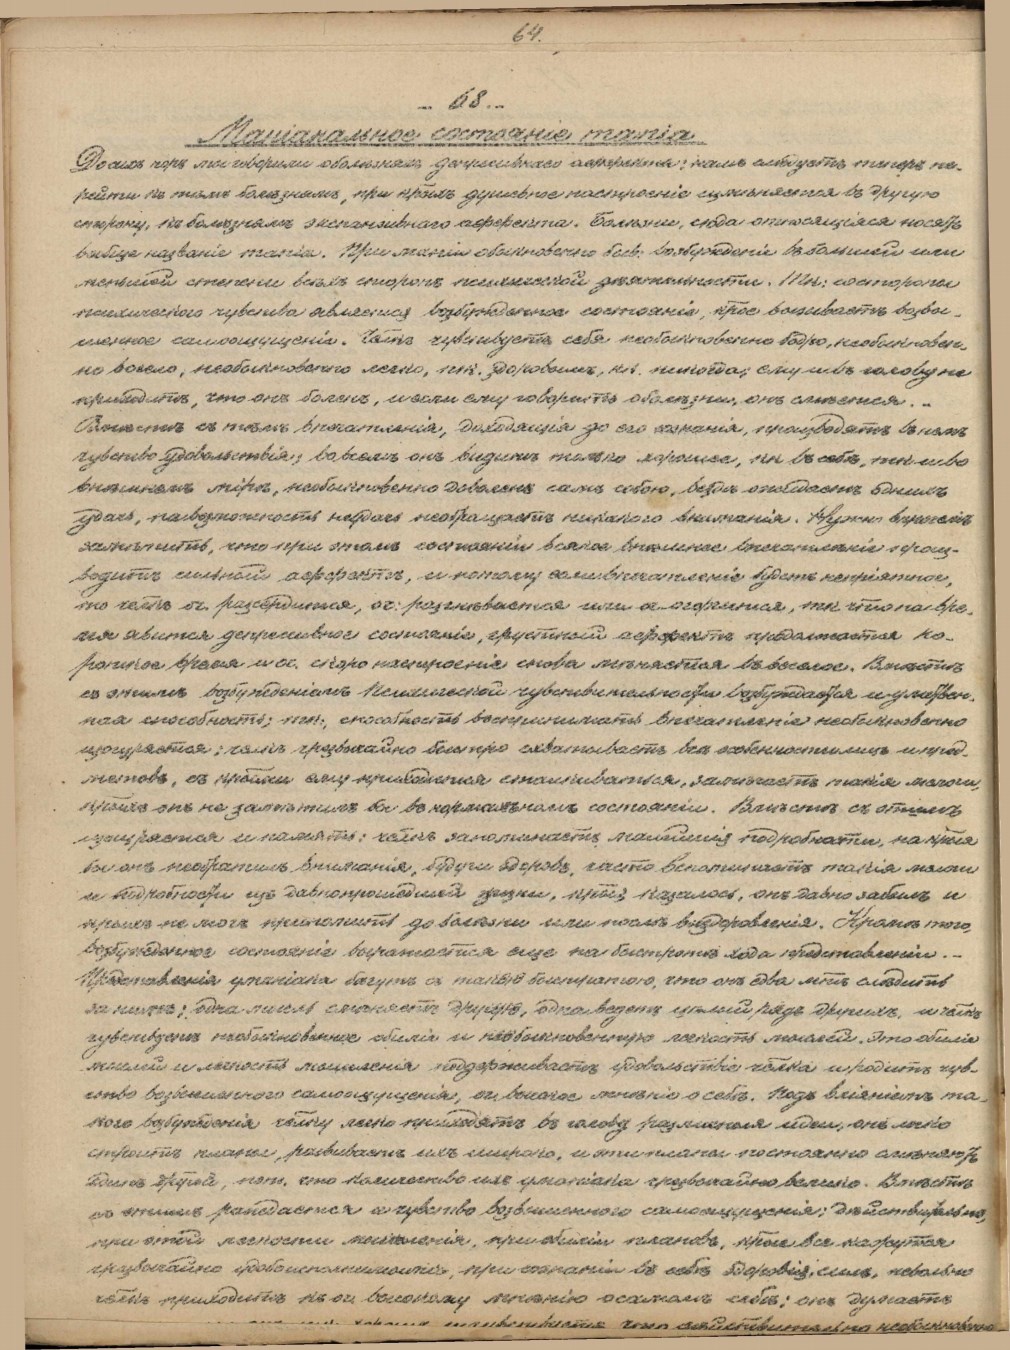 64.
68
Маніакальное состояніе mania
До сихъ поръ мы говорили о болѣзняхъ депрессивнаго аффекта; намъ слѣдуетъ теперь пе-
рейти къ тѣмъ болѣзнямъ, при крыхъ душевное настроеніе измѣняется въ другую
сторону, къ болѣзнямъ экспансивнаго аффекта. Болѣзни, сюда относящіяся носятъ
вообще названіе mania. При маніи обыкновенно быв. возбужденіе въ большей или
меньшей степени всѣхъ сторонъ психической дѣятельности. Тк: со стороны
психическаго чувства является возбужденное состояніе, крое вызываетъ возвы-
шенное самоощущеніе. Челкъ чувствуетъ себя необыкновенно бодро, необыкновен-
но весело, необыкновенно легко, тк. здоровымъ, кк. никогда; ему и въ голову не
приходитъ, что онъ боленъ, и если ему говорятъ о болѣзни, онъ смѣется.
Вмѣстѣ съ тѣмъ впечатлѣнія, доходящія до его сознанія, производятъ въ немъ
чувство удовольствія; во всемъ онъ видитъ только хорошее, кк въ себѣ, тк и во
внѣшнемъ мірѣ, необыкновенно доволенъ самъ собою, вездѣ ожидаетъ однихъ
удачъ, на возможность неудачъ не обращаетъ никакого вниманія. Нужно впрочемъ
замѣтить, что при этомъ состояніи всякое внѣшнее впечатлѣніе произ-
водитъ сильный аффектъ, и потому если впечатлѣніе будетъ непріятное,
то челкъ оч. разсердится, оч: разгнѣвается или оч. огорчится, тк что на вре-
мя явится депрессивное состояніе, грустный аффектъ продолжается ко-
роткое время и оч. скоро настроеніе снова мѣняется въ веселое. Вмѣстѣ
съ этимъ возбужденіемъ психической чувствительности возбуждается и умствен-
ная способность; тк:, способность воспринимать впечатлѣніе необыкновенно
изощряется; челкъ чрезвычайно быстро схватываетъ всѣ особенности лицъ и пред-
метовъ, съ крыми ему приходится сталкиваться, замѣчаетъ такія мелочи,
крыхъ онъ не замѣтилъ бы въ нормальномъ состояніи. Вмѣстѣ съ этимъ
изощряется и память: челкъ запоминаетъ малѣйшія подробности, на крыя
бы онъ не обратилъ вниманія, будучи здоровъ, часто вспоминаетъ такія мелочи
и подробности изъ давнопрошедшей жизни, крыя, казалось, онъ давно забылъ и
крыхъ не могъ припомнить до болѣзни или послѣ выздоровленія. Кромѣ того,
возбужденное состояніе выражается еще на быстротѣ хода представленій.
Представленія у маніака бѣгутъ съ такою быстротою, что онъ едва мтъ слѣдить
за ними; одна мысль смѣняетъ другую, одна ведетъ цѣлый рядъ другихъ, и челкъ
чувствуетъ необыкновенное обиліе и необыкновенную легкость мыслей. Это обиліе
мыслей и легкость мышленія поддерживаетъ удовольствіе челка и родитъ чув-
ство возвышеннаго самоощущенія, оч. высокое мнѣніе о себѣ. Подъ вліяніемъ та-
кого возбужденія челку легко приходятъ въ голову различныя идеи, онъ легко
строитъ планы, развиваетъ ихъ широко, и эти планы постоянно смѣняютъ
одинъ другой, пот. что количество ихъ у маніака чрезвычайно велико. Вмѣстѣ
съ этимъ рождается и чувство возвышеннаго самоощущенія; дѣйствительно,
при этой легкости мышленія, при обиліи плановъ, крые все кажутся
чрезвычайно удобоисполнимыми, при сознаніи въ себѣ здоровія, силъ, невольно
челкъ приходитъ къ оч. высокому мнѣнію о самомъ себѣ; онъ думаетъ
что дѣйствительно необыкновенно